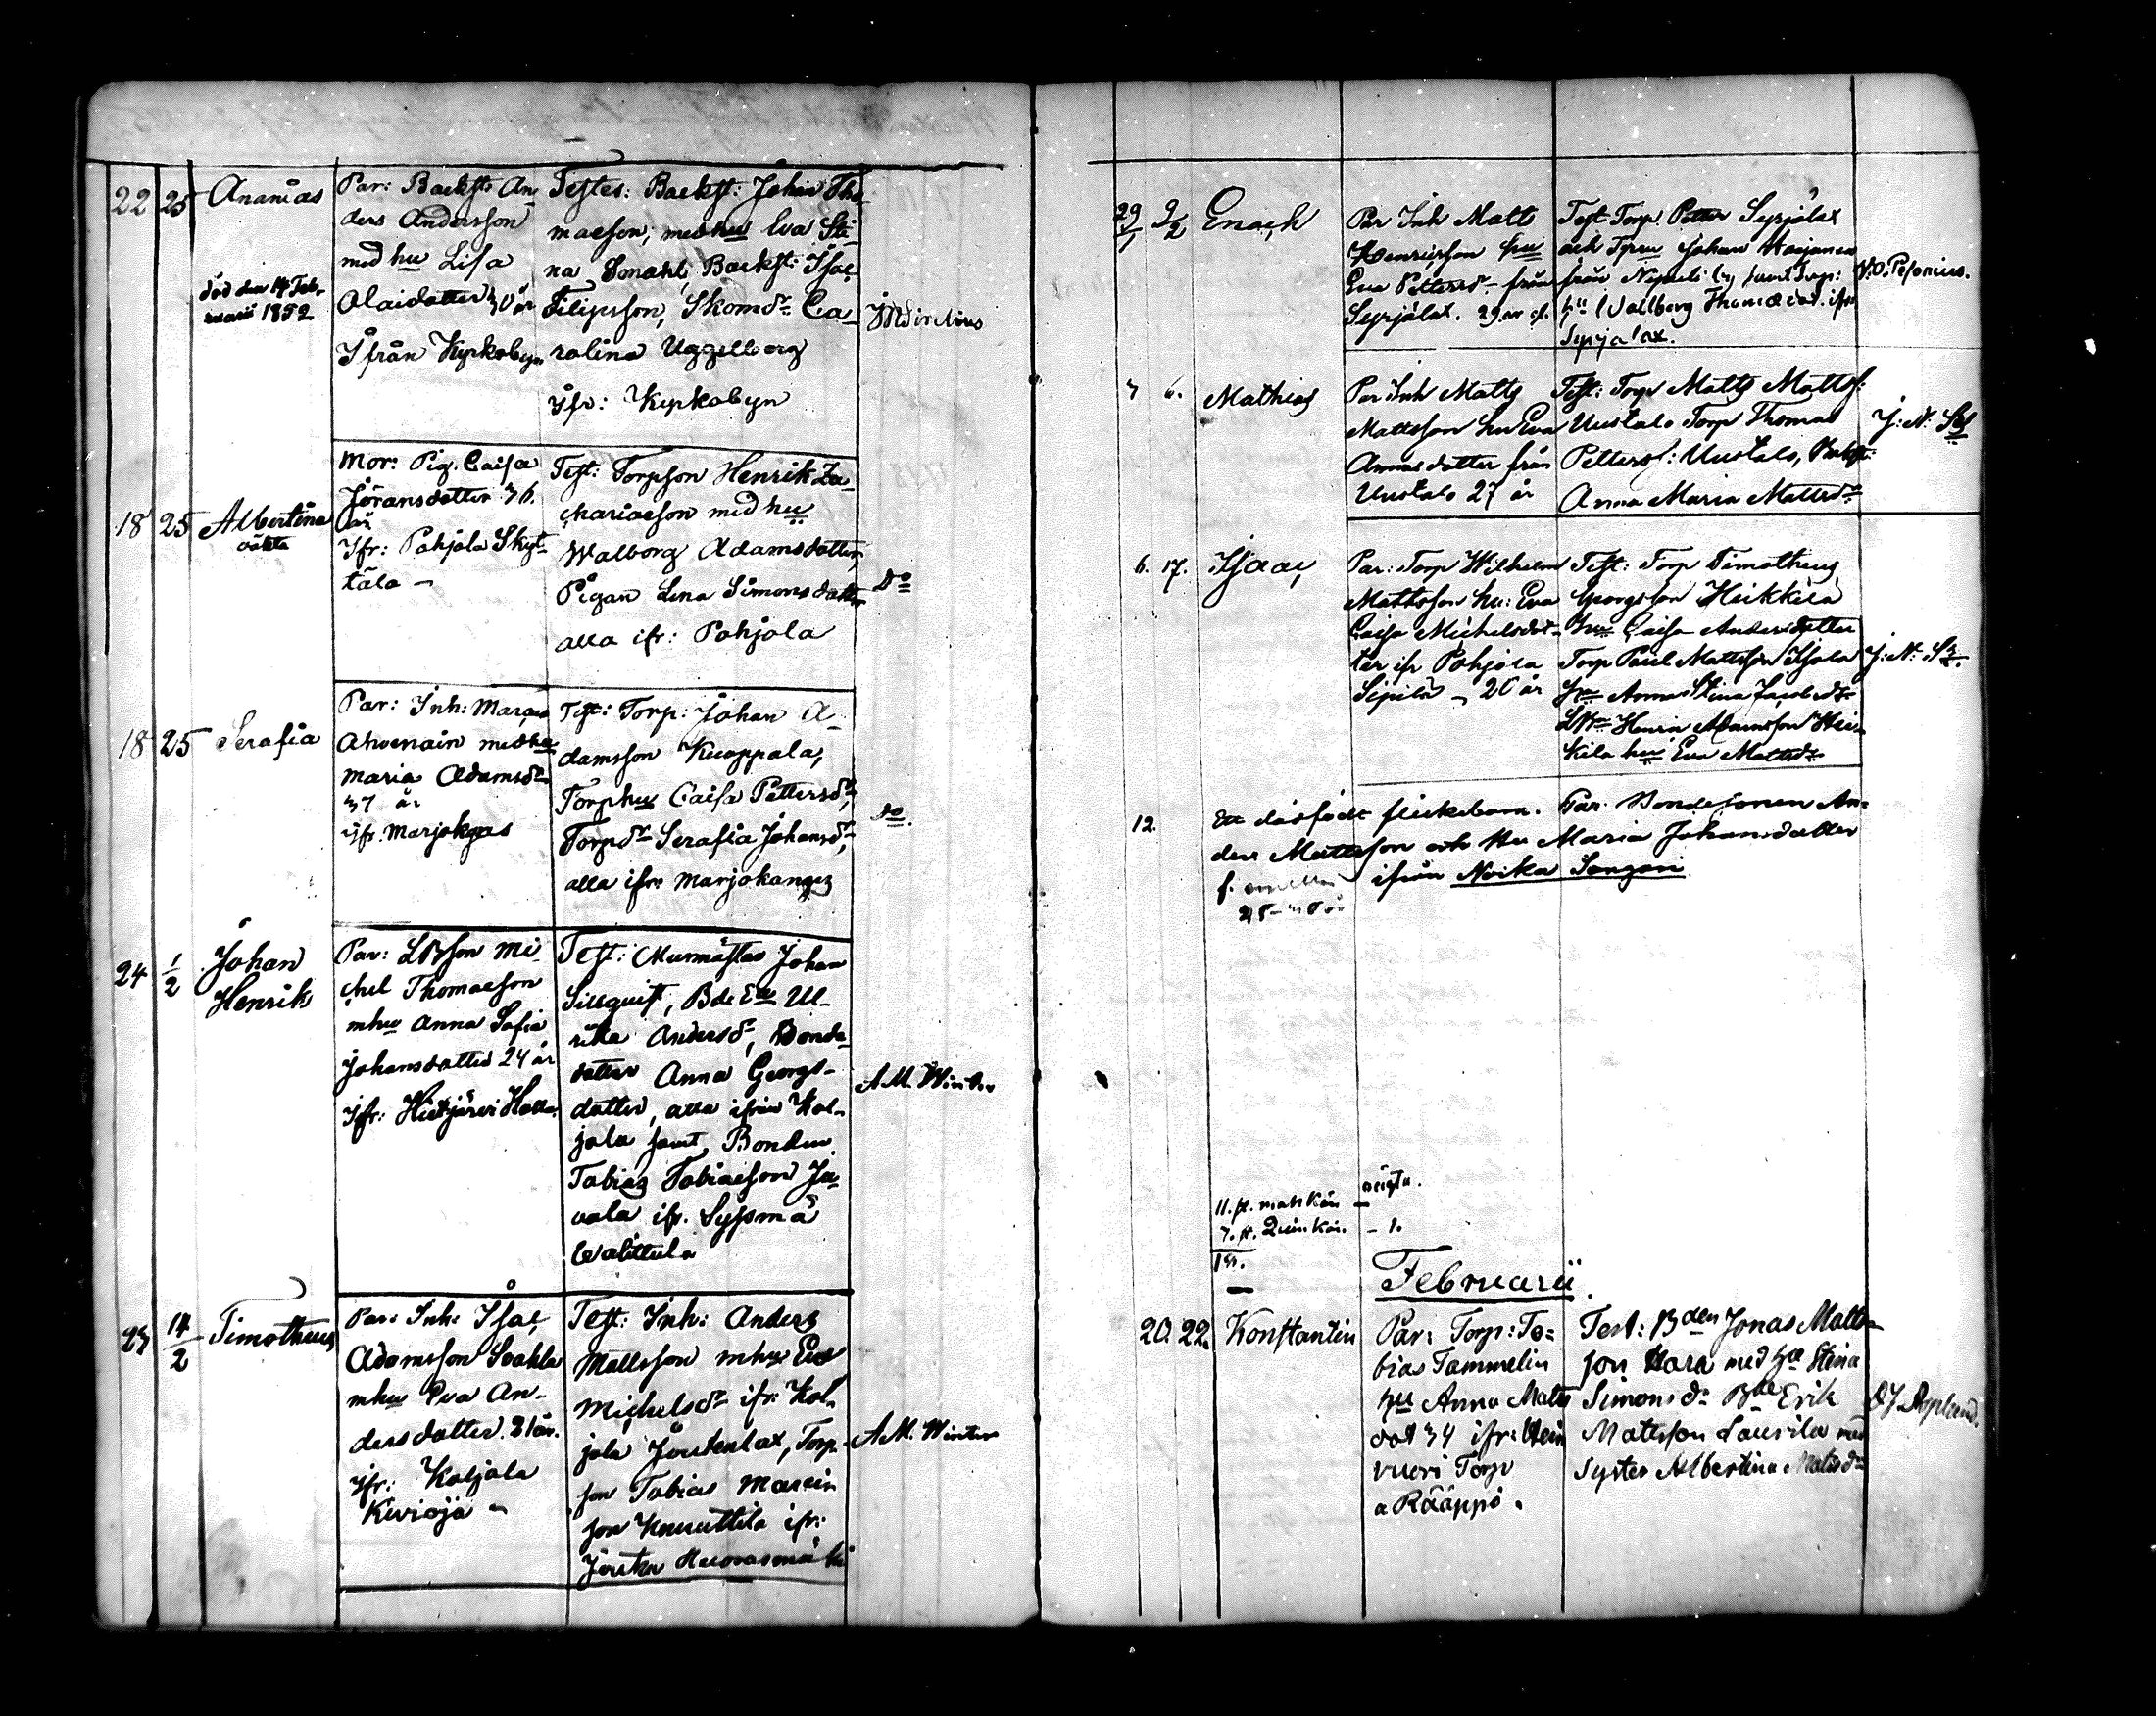 22 25 Ananias
död den 14 Feb-
ruarii 1852
Par: Backst: An-
ders Andersson
med hu Lisa
Olaidotter 30 år
Ifrån Kyrkobyn
Testes: Backst: Johan Tho-
maeson, med hu Eva Sti-
na Smahl, Backst: Isac
Filipsson, Skomdr Ca-
rolina Uggelberg
ifr: Kyrkobyn
18 25 Albertina
oäkta
Mor: Pig. Caisa
Jöransdotter 36
år
Ifr: Pohjola Skyt-
tälä –
Test: Torpson Henrik Za-
chariaeson med hu
Walborg Adamsdotter,
Pigan Lena Simonsdotter
alla ifr: Pohjola
Do
18 25 Serafia
Par: Inh: Marcus
Ahvenain med hu
Maria Adamsdr
37 år
ifr. Marjokgas
Test: Torp: Johan A-
damsson Kuoppala,
Torphu Caisa Pettersdr,
Torpdr Serafia Johansdr,
alla ifr: Marjokangas
Do.
24 1/2 Johan
Henrik
Par: LBson Mi-
chel Thomaeson
mhu Anna Sofia
Johansdotter 24 år
Ifr: Hietjärvi
Test: Murmästar Johan
Sillquist, Bde Ul-
rika Andersdr, Bonde-
dotter Anna Georgs-
dotter, alla ifrån Kol-
jola samt Bonden
Tobias Tobiaeson Ju-
vola ifr. Syssmä
Walittula
A.M. Winter
23 14/2 Timotheus
Par: Inh: Isac
Adamsson
mhu Eva An-
dersdotter 21 år.
Ifr: Koljola
Kivioja –
Test: Inh: Anders
Mattsson mhu Eva
Michelsdr ifr: Kol-
jola Joutenlax, Torp-
son Tobias Marcin
son Knuuttila ifr:
Joutka
A.M. Winter
29/1 9/2 Enoch
Par Inh Matts
Henricsson hu
Eva Pettersdr från
Syrjälax. 29 år gl.
Test: Torp Petter Syrjälax
och Johan
från by samt Torp:
hu Wallborg Thomædot. ifr
Syrjälax.
7 6. Mathias
Par Inh Matts
Mattsson hu Eva
Annasdotter från
Uustalo 27 år
Test: Torp Matts Matts:
Uustalo Torp Thomas
Petters: Uustalo,
Anna Maria Mattsdr
6. 17. Isaac
Par: Torp Wilhelm
Mattsson hu: Eva
Caisa Michelsdot-
ter ifr Pohjola
Sipilä – 20 år
Test: Torp Timotheus
Georgsson Heikkilä
hu Caisa Andersdotter
Torp Paul Mattsson
hu Anna Stina Jacobsdr
Henrik Adamsson Hei-
kilä hu Eva Mattsdr
12. Ett dödfödt flickebarn. Par. Bondesonen An-
ders Mattsson och Hu Maria Johansdotter
ifrån
11. st. mank[ön] –
7. st. Quinkön. – 1.
18.
Februarii.
20. 22. Konstantin
Par: Torp: To-
bias Tammelin
hu Anna Matts
dot 34 ifr:
vuori Torp
a Rääppö.
Test: Bden Jonas Matts-
son med hu Stina
Simonsdr Bde Erik
Mattsson Laurila med
Syster Albertina Mattsdr